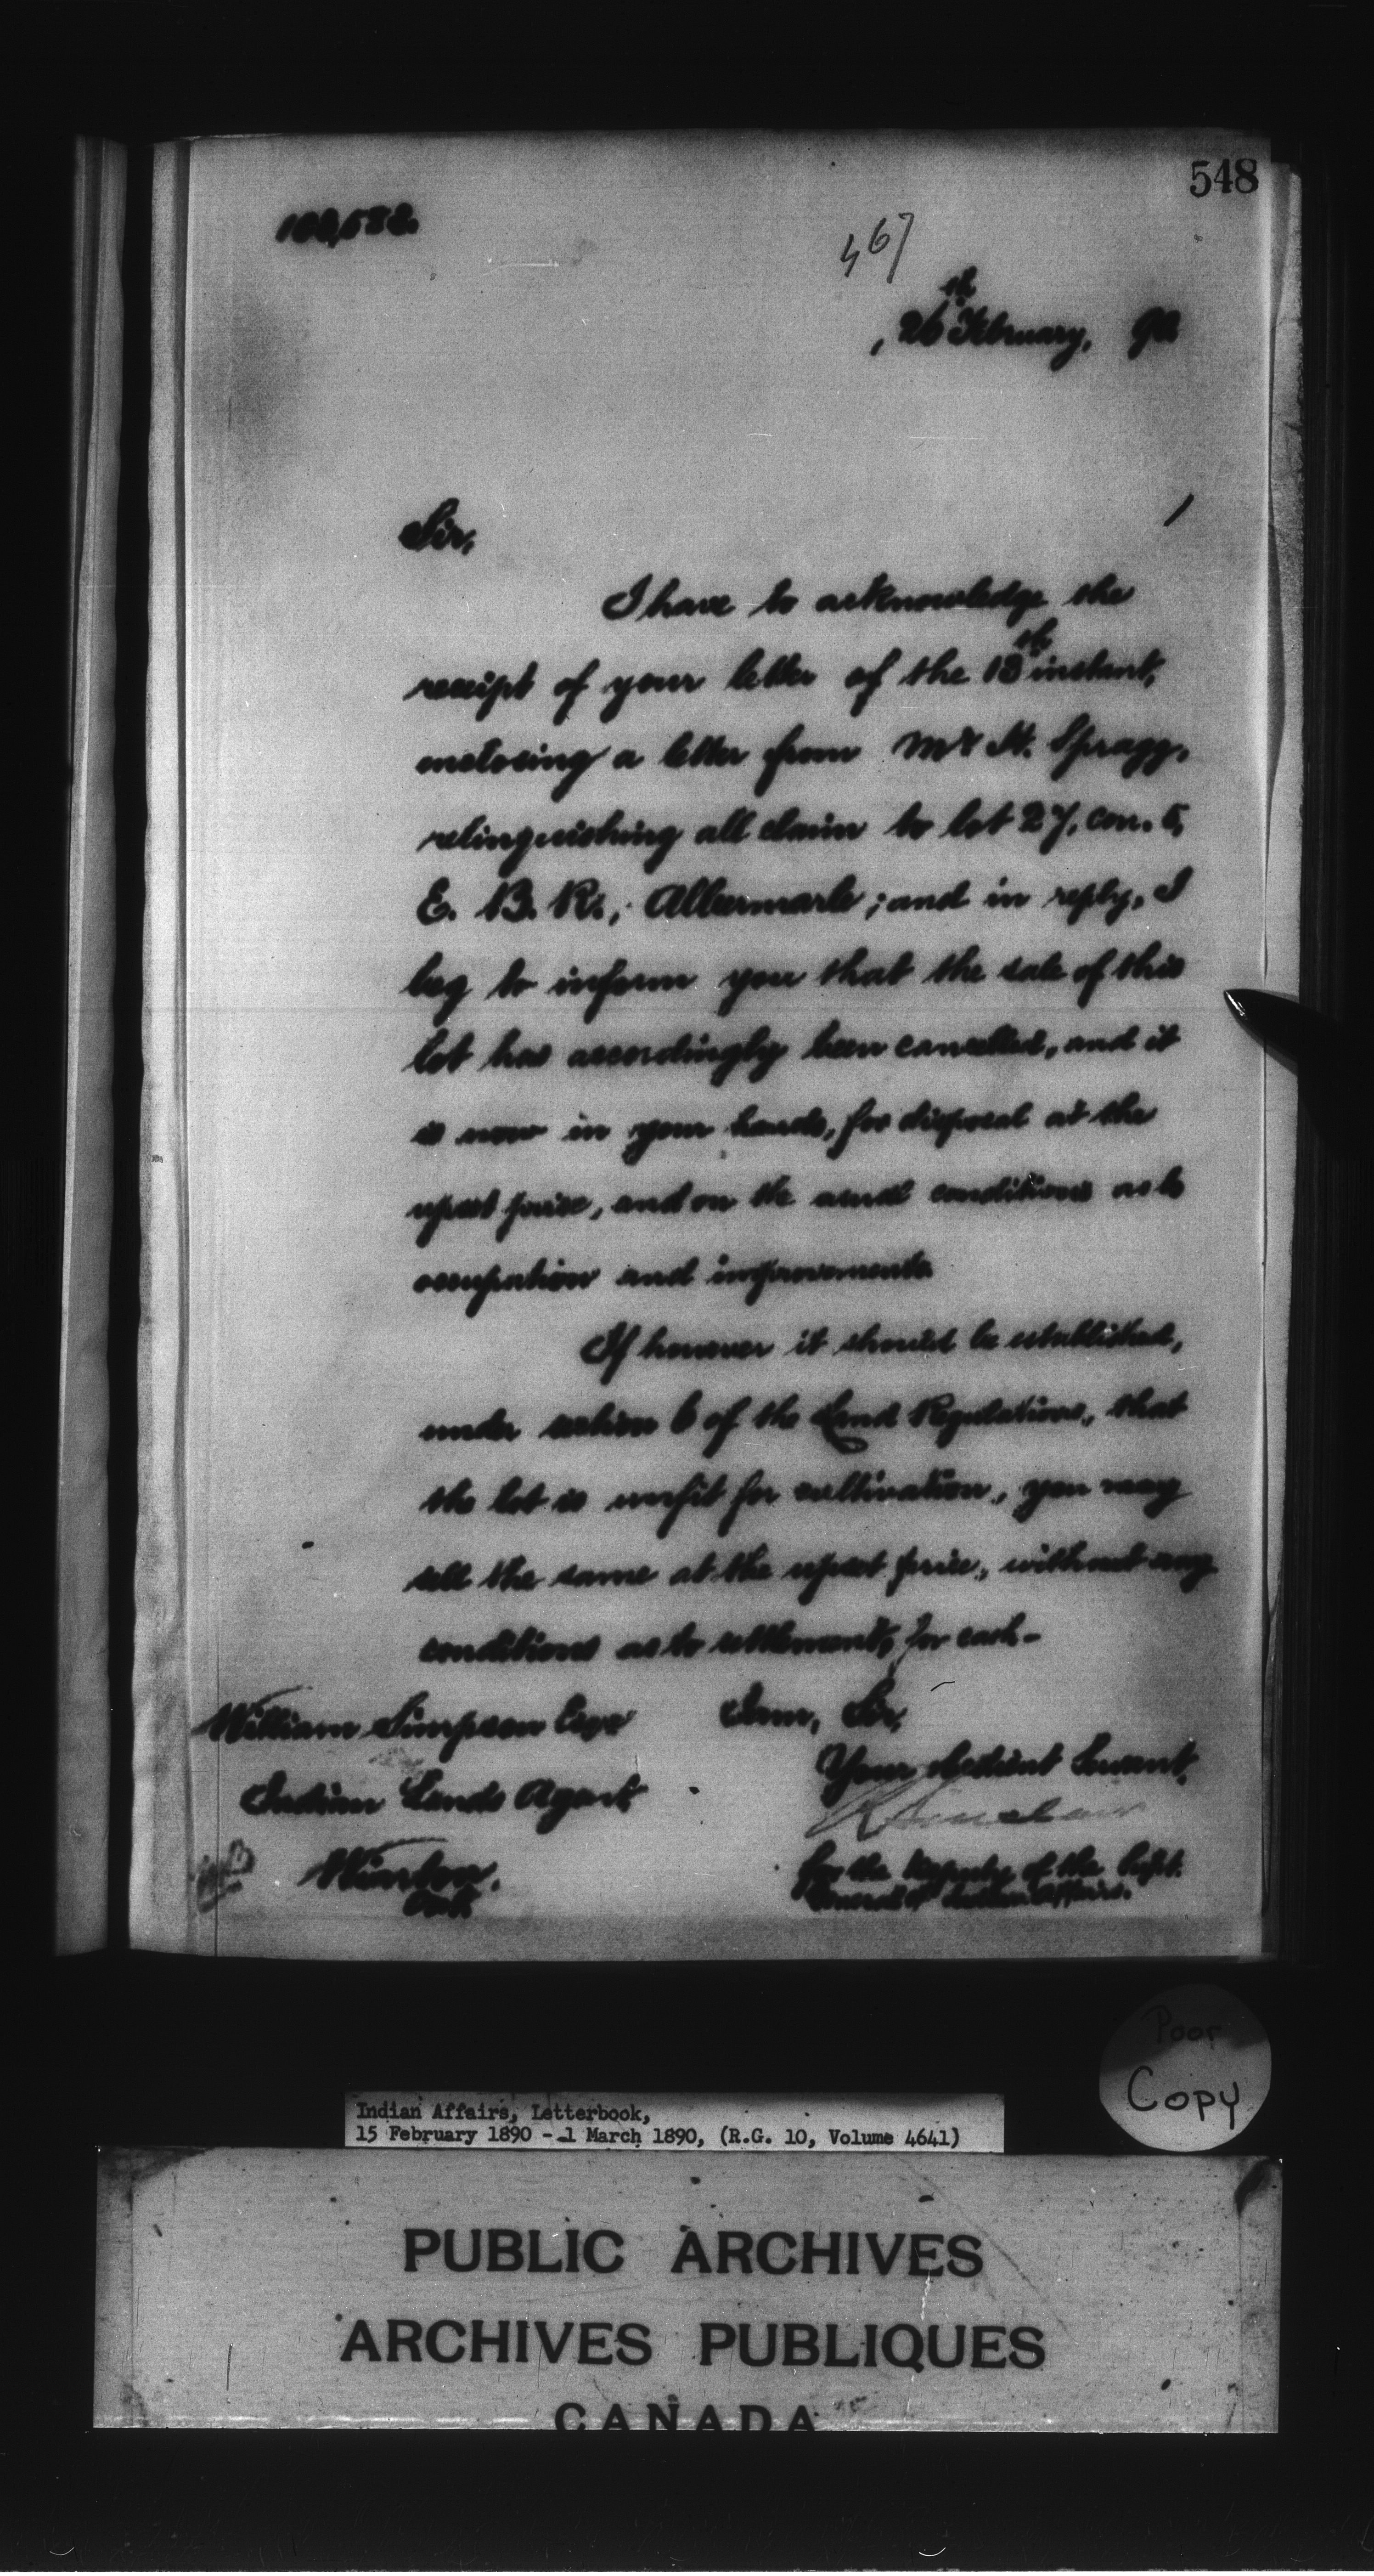 548
467
26th February, 90
Sir,
I have to acknowledge the
receipt of your letter of the 13th instant,
enclosing a letter from Mr H. Spragg,
relinquishing all claim to lot 27, con. 5,
E. B. R., Albermarle; and in reply, I
beg to inform you that the sale of this
lot has accordingly been cancelled, and it
is now in your hands, for disposal at the
upset price, and on the usual conditions as to
occupation and improvements
If however it should be established,
under section 6 of the Land Regulations, that
the lot is unfit for cultivation, you may
sell the same at the upset price, without any
conditions as to settlement, for cash -
William Simpson Esqr
I am, Sir,
Your obedient Servant,
Indian Lands Agent
R Sinclair
Wiarton,
Ont.
for the Deputy of the Supt.
General of Indian Affairs.
Poor
Copy
Indian Affairs, Letterbook,
15 February 1890 - 1 March 1890, (R.G. 10, Volume 4641)
PUBLIC ARCHIVES
ARCHIVES PUBLIQUES
CANADA